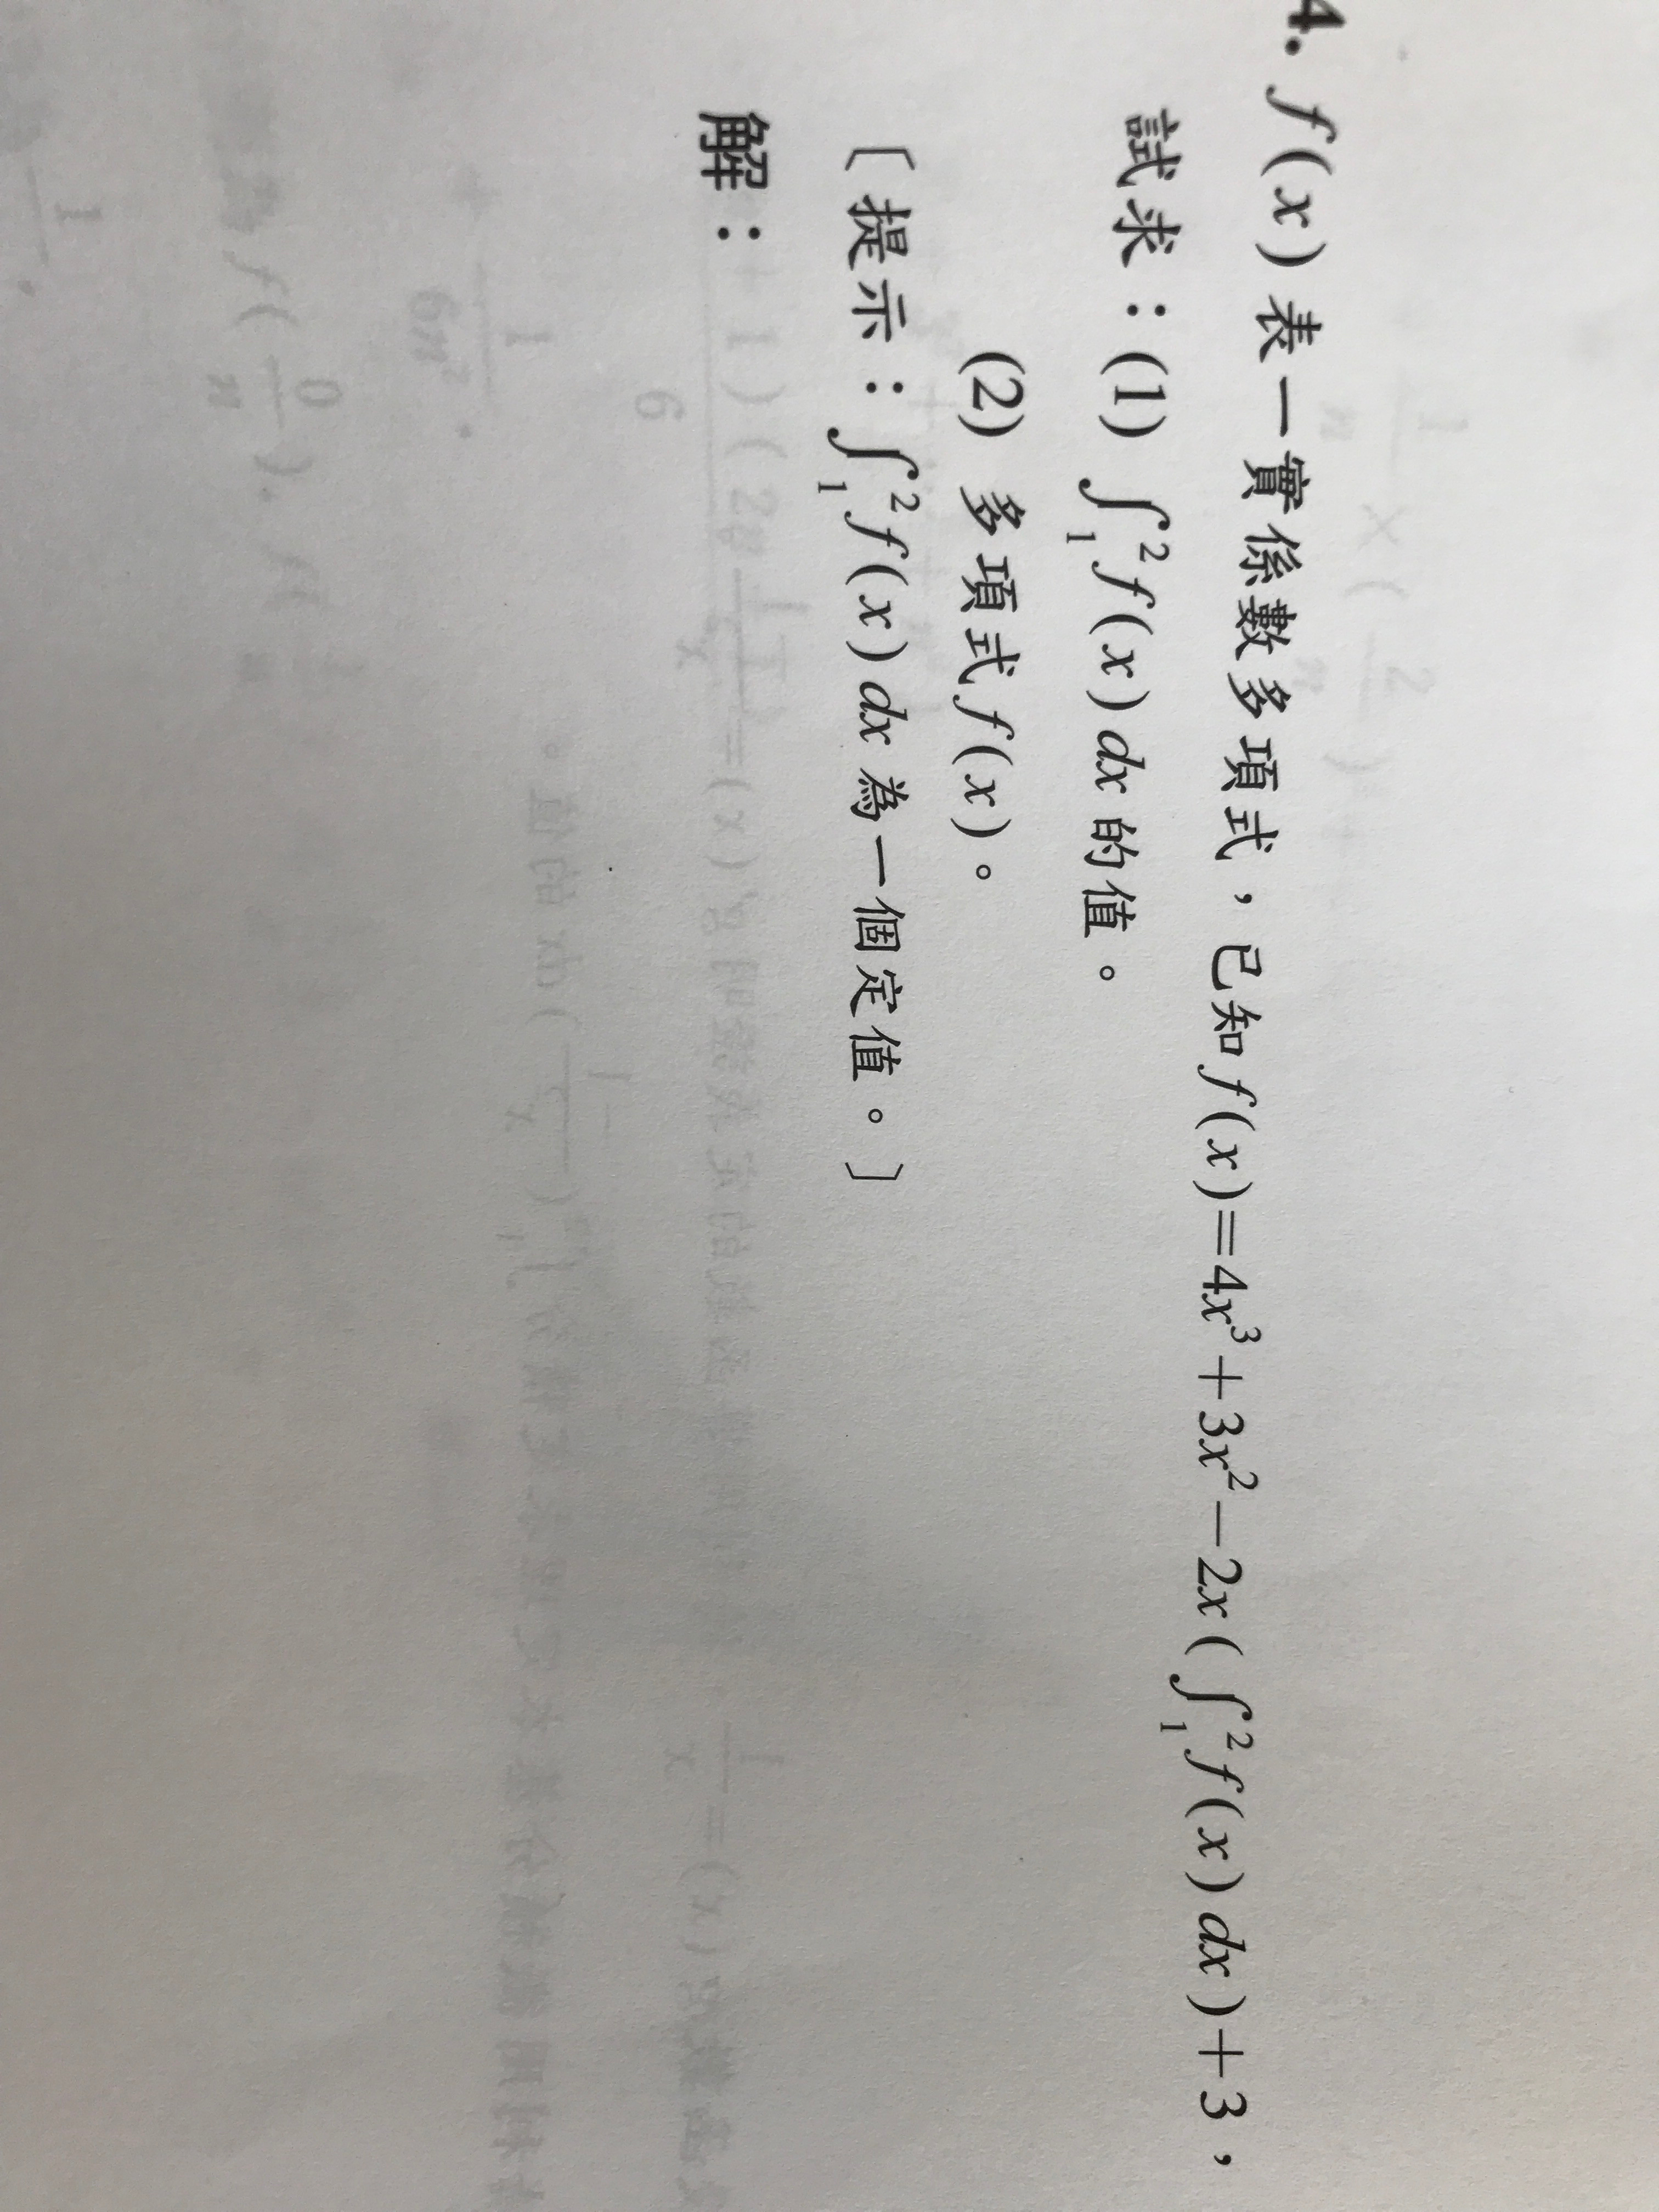 4. f(x)表一實係數多項式，已知f(x)=4x³+3x²−2x(∫₁²f(x)dx)+3，
試求：(1) ∫₁²f(x)dx的值。
(2) 多項式f(x)。
〔提示：∫₁²f(x)dx為一個定值。〕
解：